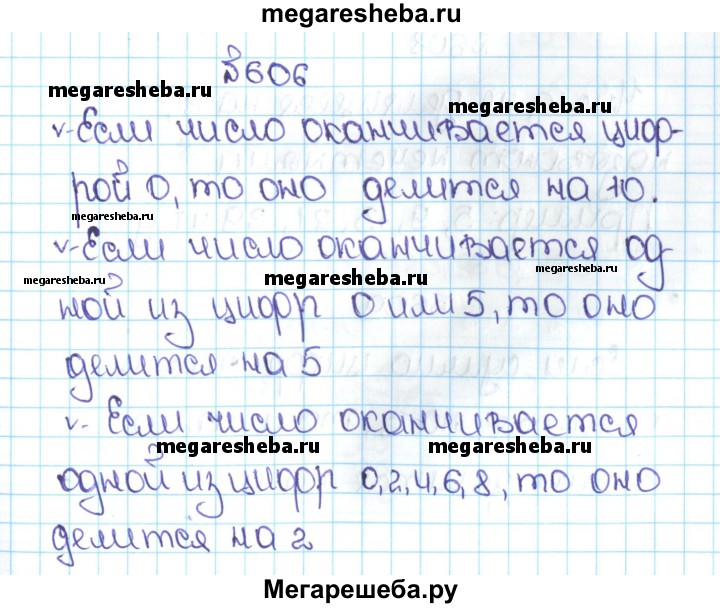 megaresheba.ru
№606
megaresheba.ru
megaresheba.ru
v-Если число оканчивается циф-
рой 0, то оно делится на 10.
megaresheba.ru
v-Если число оканчивается од-
megaresheba.ru
megaresheba.ru
megaresheba.ru
ной из цифр 0 или 5, то оно
делится на 5
v- Если число оканчивается
megaresheba.ru
megaresheba.ru
одной из цифр 0,2,4,6,8, то оно
делится на 2
Мегарешеба.ру